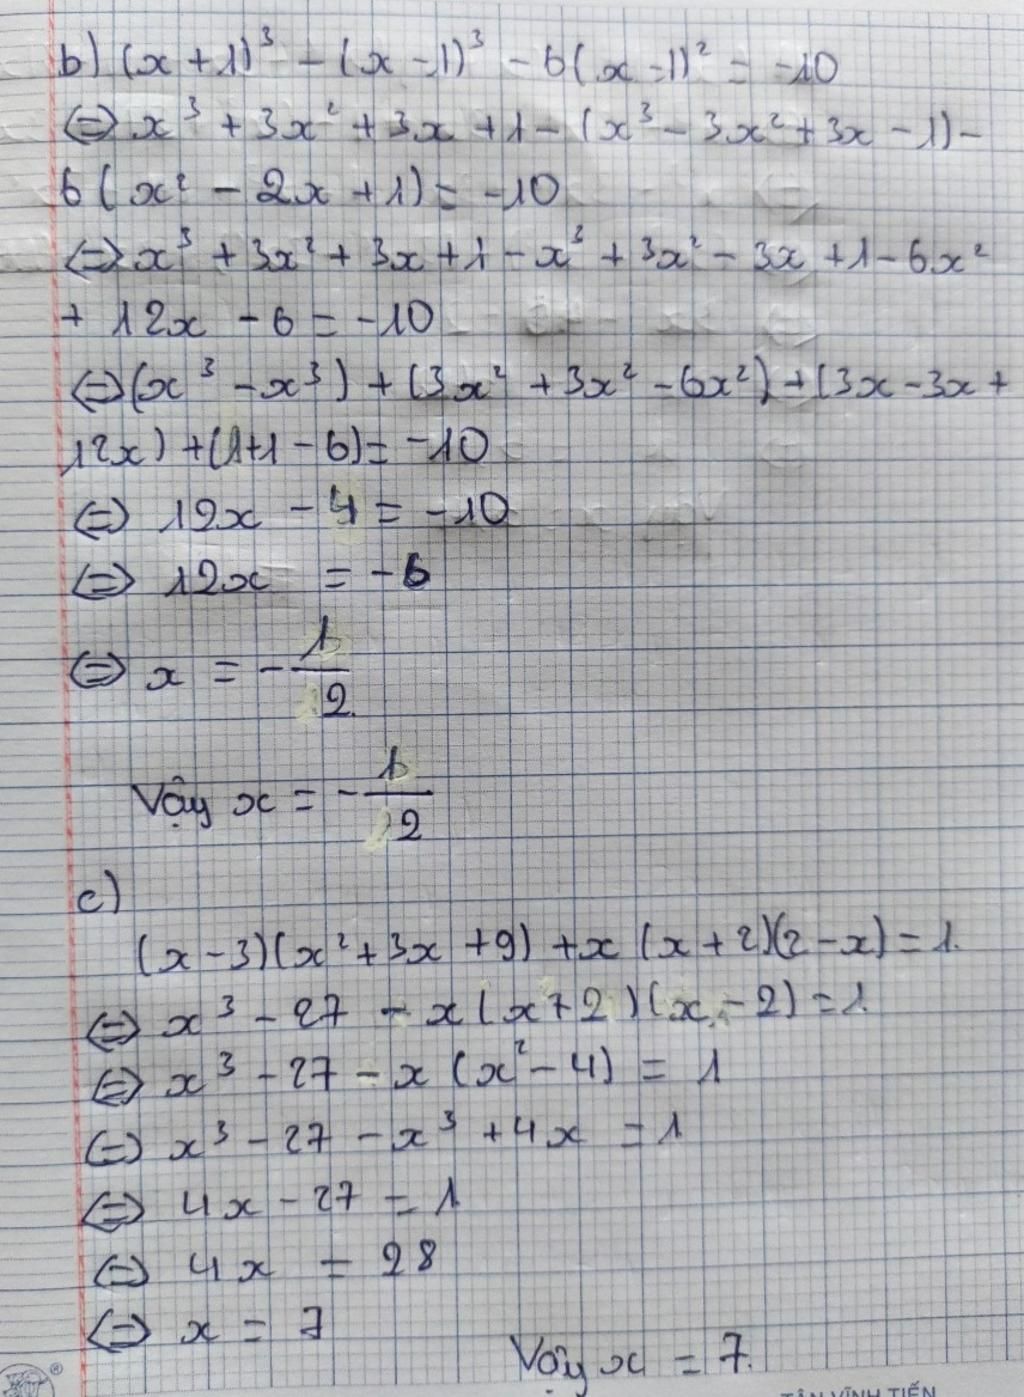 b) (x + 1)³ - (x - 1)³ - 6(x - 1)² = -10
⇔ x³ + 3x² + 3x + 1 - (x³ - 3x² + 3x - 1) -
6(x² - 2x + 1) = -10
⇔ x³ + 3x² + 3x + 1 - x³ + 3x² - 3x + 1 - 6x²
+ 12x - 6 = -10
⇔ (x³ - x³) + (3x² + 3x² - 6x²) + (3x - 3x +
12x) + (1+1 - 6) = -10
⇔ 12x - 4 = -10
⇔ 12x = -6
⇔ x = -1/2
Vậy x = -1/2
c)
(x - 3)(x² + 3x + 9) + x (x + 2)(2 - x) = 1.
⇔ x³ - 27 - x(x + 2)(x - 2) = 1.
⇔ x³ - 27 - x (x² - 4) = 1
⇔ x³ - 27 - x³ + 4x = 1
⇔ 4x - 27 = 1
⇔ 4x = 28
⇔ x = 7
Vậy x = 7.
TÂN VĨNH TIẾN